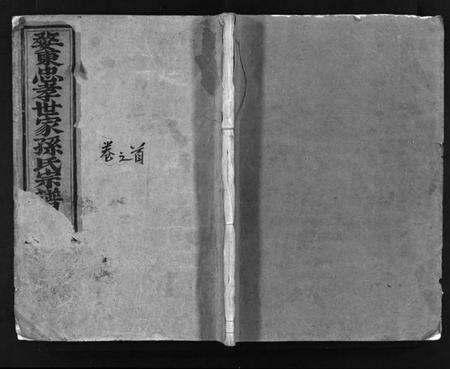 婺東忠孝世家孫氏宗譜
卷之首